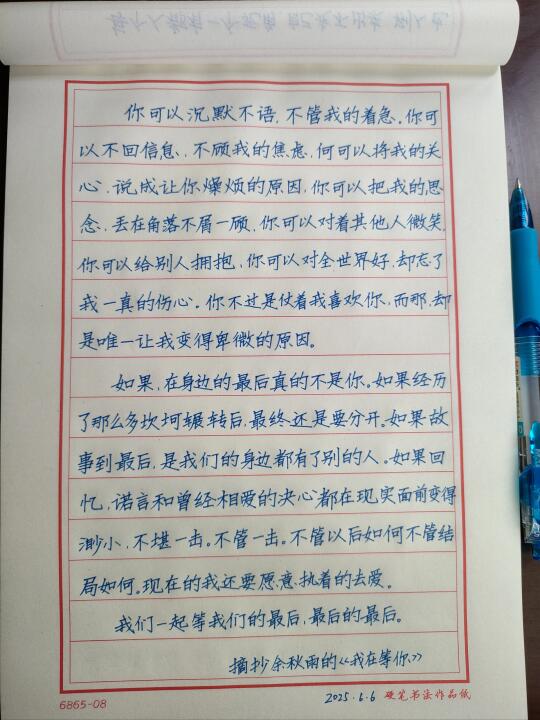 你可以沉默不语，不管我的着急。你可
以不回信息，不顾我的焦虑，何可以将我的关
心，说成让你燥烦的原因，你可以把我的思
念，丢在角落不屑一顾，你可以对着其他人微笑，
你可以给别人拥抱，你可以对全世界好，却忘了
我一真的伤心。你不过是仗着我喜欢你，而那，却
是唯一让我变得卑微的原因。
如果，在身边的最后真的不是你。如果经历
了那么多坎坷辗转后，最终还是要分开。如果故
事到最后，是我们的身边都有了别的人。如果回
忆，诺言和曾经相爱的决心都在现实面前变得
渺小，不堪一击。不管一击。不管以后如何不管结
局如何。现在的我还要愿意执着的去爱。
我们一起等我们的最后，最后的最后。
摘抄余秋雨的《我在等你》
6865-08
2025.6.6 硬笔书法作品纸